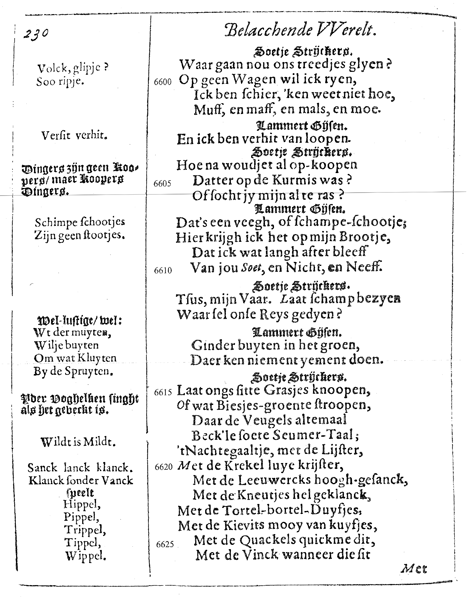 230
Belacchende VVerelt.
Soetje Strijckers.
Volck, glipje ?
Waar gaan nou ons treedjes glyen ?
Soo ripje.
6600 Op geen Wagen wil ick ryen,
Ick ben schier, 'ken weet niet hoe,
Muff, en maff, en mals, en moe.
Lammert Gijsen.
Versit verhit.
En ick ben verhit van loopen.
Soetje Strijckers.
Dingers zijn geen Koo-
pers/ maer Koopers
Dingers.
Hoe na woudjet al op-koopen
6605 Datter op de Kurmis was ?
Of socht jy mijn al te ras ?
Lammert Gijsen.
Schimpe schootjes
Zijn geen stootjes.
Dat's een veegh, of schampe-schootje;
Hier krijgh ick het op mijn Brootje,
Dat ick wat langh after bleeff
6610 Van jou Soet, en Nicht, en Neeff.
Soetje Strijckers.
Tsus, mijn Vaar. Laat schamp bezyen
Waar sel onse Reys gedyen ?
Wel-lustige/ wel:
Wt der muyten,
Wilje buyten
Om wat Kluyten
By de Spruyten.
Lammert Gijsen.
Ginder buyten in het groen,
Daer ken niement yement doen.
Soetje Strijckers.
Yder Voghelken singht
als het gebeckt is.
6615 Laat ongs sitte Grasjes knoopen,
Of wat Biesjes-groente stroopen,
Daar de Veugels altemaal
Wildt is Mildt.
Beck'le soete Seumer-Taal;
'tNachtegaaltje, met de Lijster,
Sanck lanck klanck.
6620 Met de Krekel luye krijster,
Klanck sonder Vanck
speelt
Hippel,
Pippel,
Trippel,
Tippel,
Wippel.
Met de Leeuwercks hoogh-gesanck,
Met de Kneutjes hel geklanck,
Met de Tortel-bortel-Duyfjes;
Met de Kievits mooy van kuyfjes,
6625 Met de Quackels quickme dit,
Met de Vinck wanneer die sit
Met